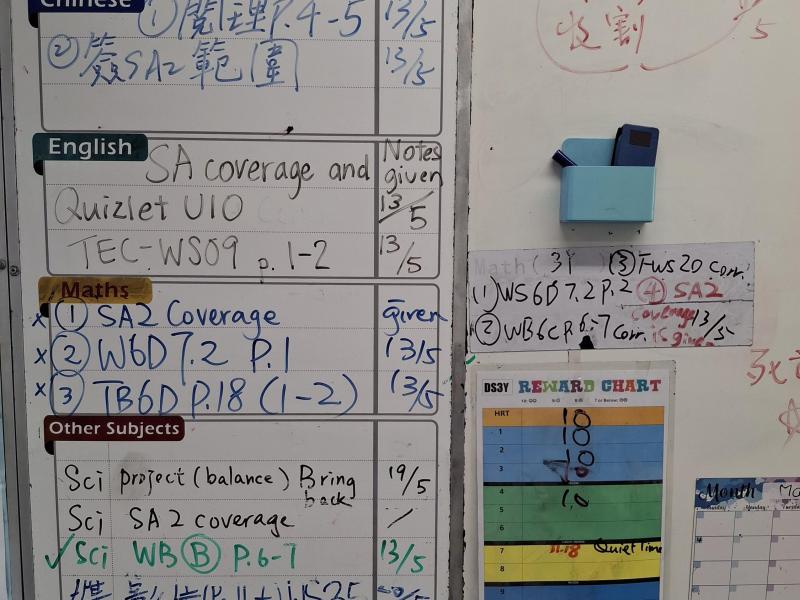 Chinese
① 閱理 P.4-5 13/5
② 簽SA2 範圍 13/5
English
SA coverage and Notes given
Quizlet U10 13/5
TEC-WS09 p.1-2 13/5
Maths
x ① SA2 Coverage given
x ② W6D7.2 P.1 13/5
x ③ TB6D P.18 (1-2) 13/5
Other Subjects
Sci project (balance) Bring back 19/5
Sci SA2 coverage /
✓ Sci WB Ⓑ P.6-7 13/5
收割
5
Math ( 3Y ) ③ FWS20 Corr.
① WS6D7.2 P.2 ④ SA2
coverage is given
② WB6C P.6-7 Corr. 13/5
DS3Y REWARD CHART
HRT 10
1 10
2 10
3
4 10
5
6
7 Quiet Time
8
9
Month